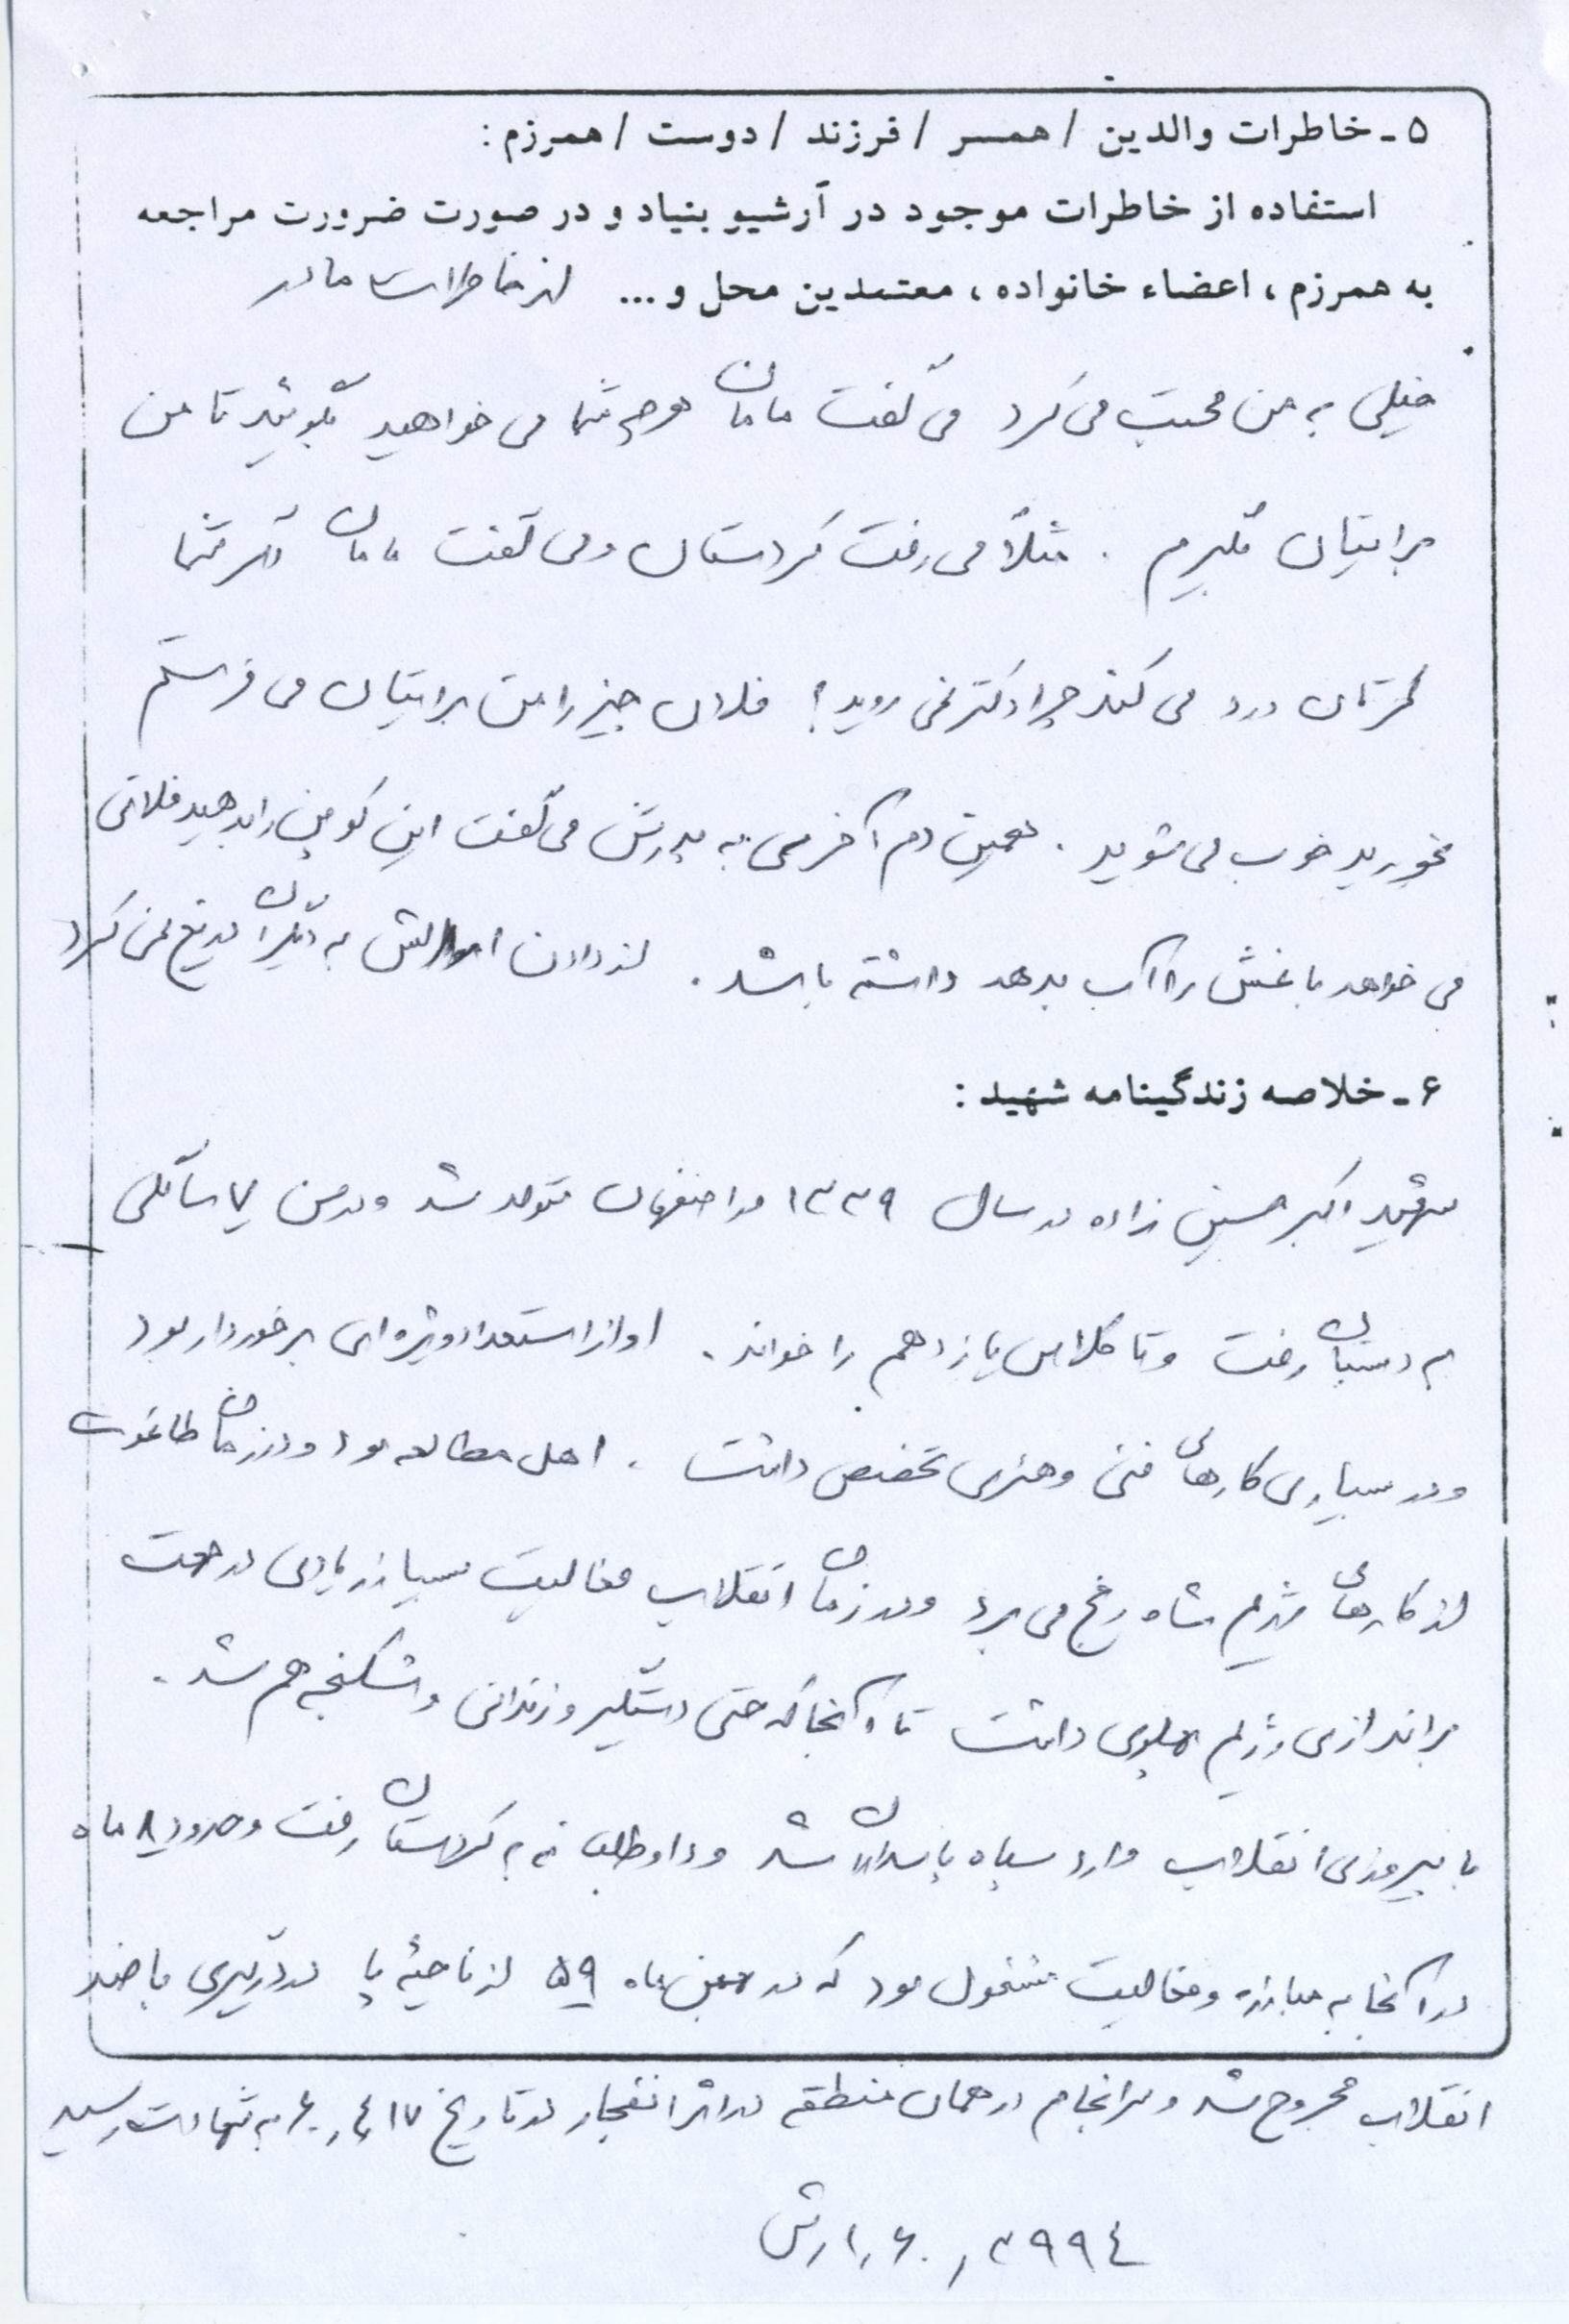 ۵ـ خاطرات والدین / همسر / فرزند / دوست / همرزم :
استفاده از خاطرات موجود در آرشیو بنیاد و در صورت ضرورت مراجعه
به همرزم ، اعضاء خانواده ، معتمدین محل و ... از خاطرات مادر
خیلی به من محبت می کرد می گفت مامان هرچه شما می خواهید بگوئید تا من
برایتان بگیرم . مثلاً می رفت کردستان و می گفت مامان اگر شما
کمرتان درد می کند چرا دکتر نمی روید ؟ فلان چیز را من برایتان می فرستم
بخورید خوب می شوید . همین دم آخرمی به پدرش می گفت این کوپن را بدهید فلانی
می خواهد باغش را آب بدهد داشته باشد . از دادن اموالش به دیگران دریغ نمی کرد
۶ـ خلاصه زندگینامه شهید :
شهید اکبر حسین زاده در سال ۱۳۳۹ در اصفهان متولد شد و در سن ۷ سالگی
به دبستان رفت و تا کلاس یازدهم را خواند . او از استعداد ویژه ای برخوردار بود
و در بسیاری کارهای فنی و هنری تخصص داشت . اهل مطالعه بود و در زمان طاغوت
از کارهای رژیم شاه رنج می برد و در زمان انقلاب فعالیت بسیار زیادی در جهت
براندازی رژیم پهلوی داشت تا آنجا که حتی دستگیر و زندانی و شکنجه هم شد .
با پیروزی انقلاب وارد سپاه پاسداران شد و داوطلبانه به کردستان رفت و حدود ۸ ماه
در آنجا به مبارزه و فعالیت مشغول بود که در بهمن ماه ۵۹ از ناحیه پا در درگیری با ضد
انقلاب مجروح شد و سرانجام در همان منطقه در اثر انفجار در تاریخ ۶۰/۴/۱۷ به شهادت رسید